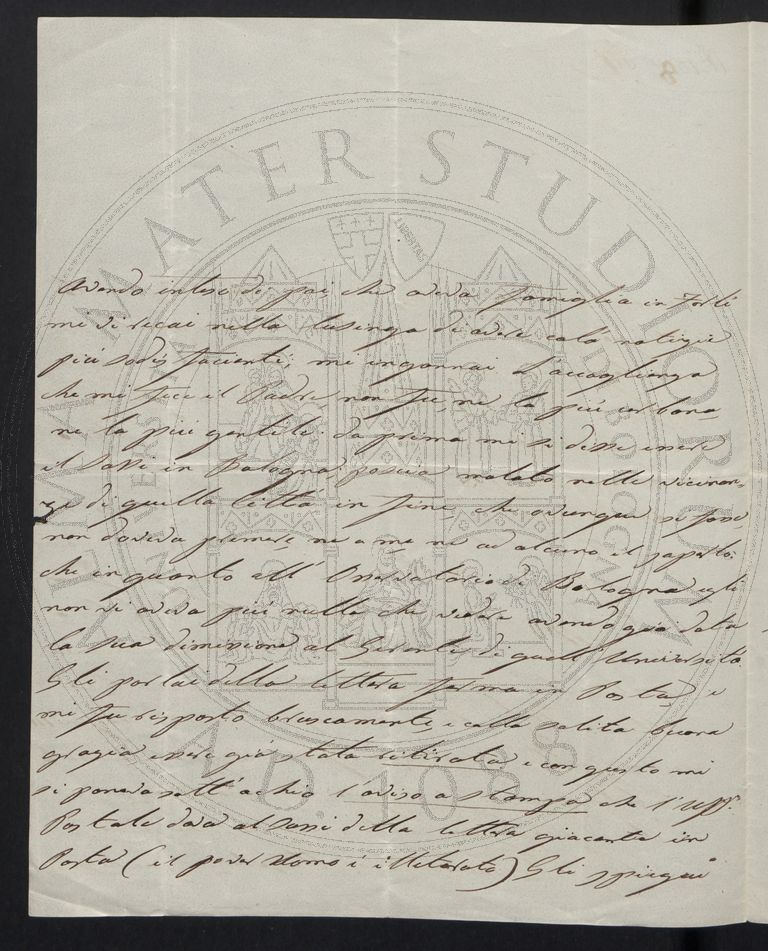 ALMA MATER STUDIORUM
A.D. 1088
LIBERTAS
Avendo inteso di poi che aveva famiglia in Forlì
mi vi recai nella lusinga di avere colà notizie
più sodisfacenti; mi ingannai. L'accoglienza
che mi fece il Padre non fu, ne la più cortese,
ne la più gentile. Da prima mi si disse essere
il Sassi in Bologna, poscia malato nelle vicinan-
ze di quella Città in fine, che ovunque si fosse
non doveva premere, ne a me ne ad alcuno il saperlo:
che in quanto all' Osservatorio di Bologna egli
non vi aveva più nulla che vedere avendo già data
la sua dimissione al Gerente di quell' Università.
Gli parlai della lettera ferma in Posta, e
mi fu risposto bruscamente, e colla solita buona
grazia essere già stata ritirata e con questo mi
si poneva sott' occhio l'avviso a stampa che l'Uff°.
Postale dava al Sassi della lettera giacente in
Posta (il pover Uomo è illetterato) Gli spiegai